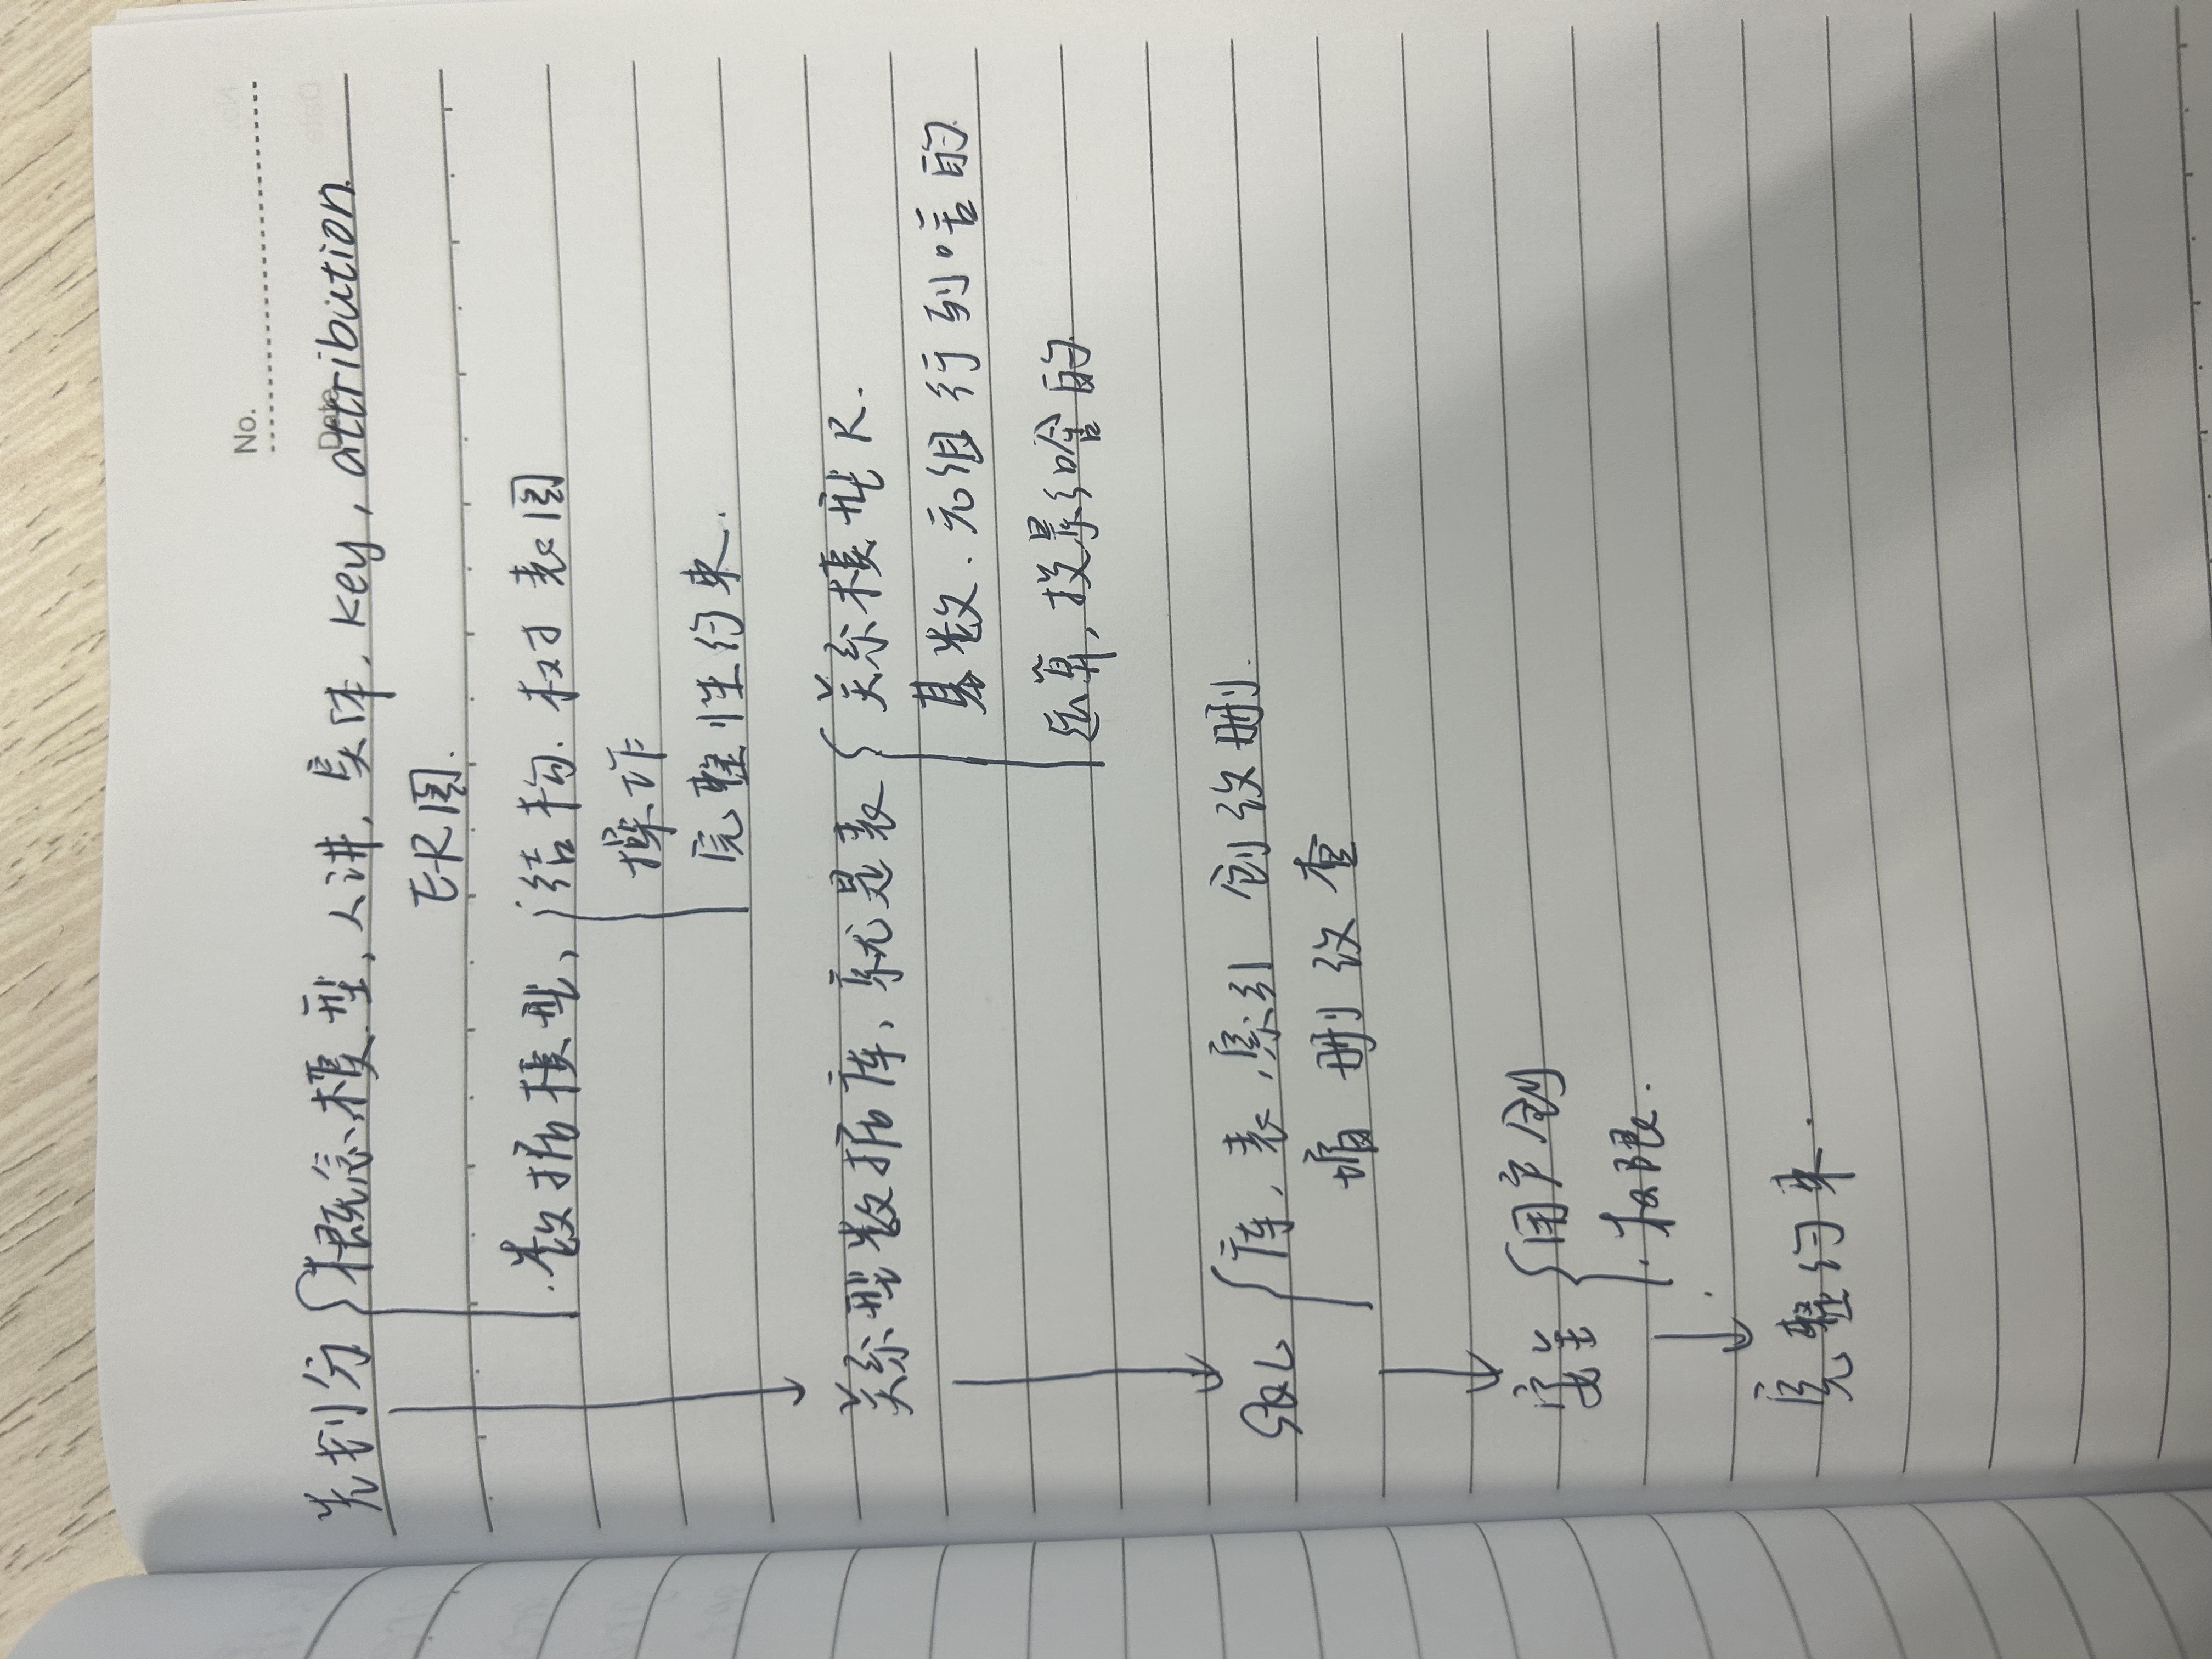 No.
Date
先划分 概念模型, 人讲, 实体, key, attribution
E-R图.
数据模型, 结构. 树 表 图
操作
完整性约束.
关系型数据库, 就是表 关系模型 R.
基数. 元组 行 列 啥的
运算, 投影 啥的
SQL 库, 表, 索引 创 改 删.
增 删 改 查
安全 用户创
权限.
完整约束.